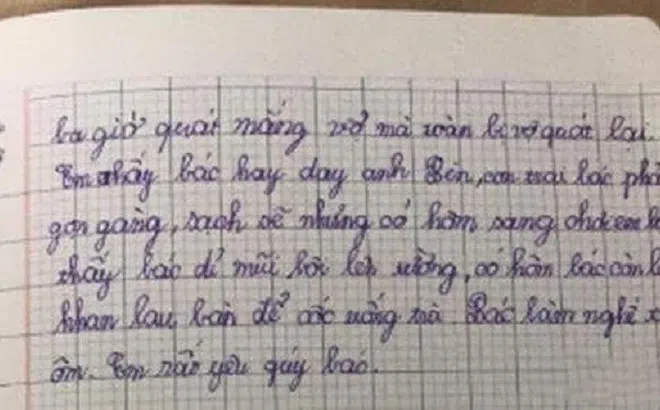 ba giờ quát mắng vợ mà toàn bị vợ quát lại.
Em thấy bác hay dạy anh Bên, con trai bác phả
gọn gàng, sạch sẽ nhưng có hôm sang chơi em
thấy bác dí mũi hôi lên tường, có hôn bác còn
khan lau bàn để cốc uống trà Bác làm nghề x
ôm. Em rất yêu quý bác.